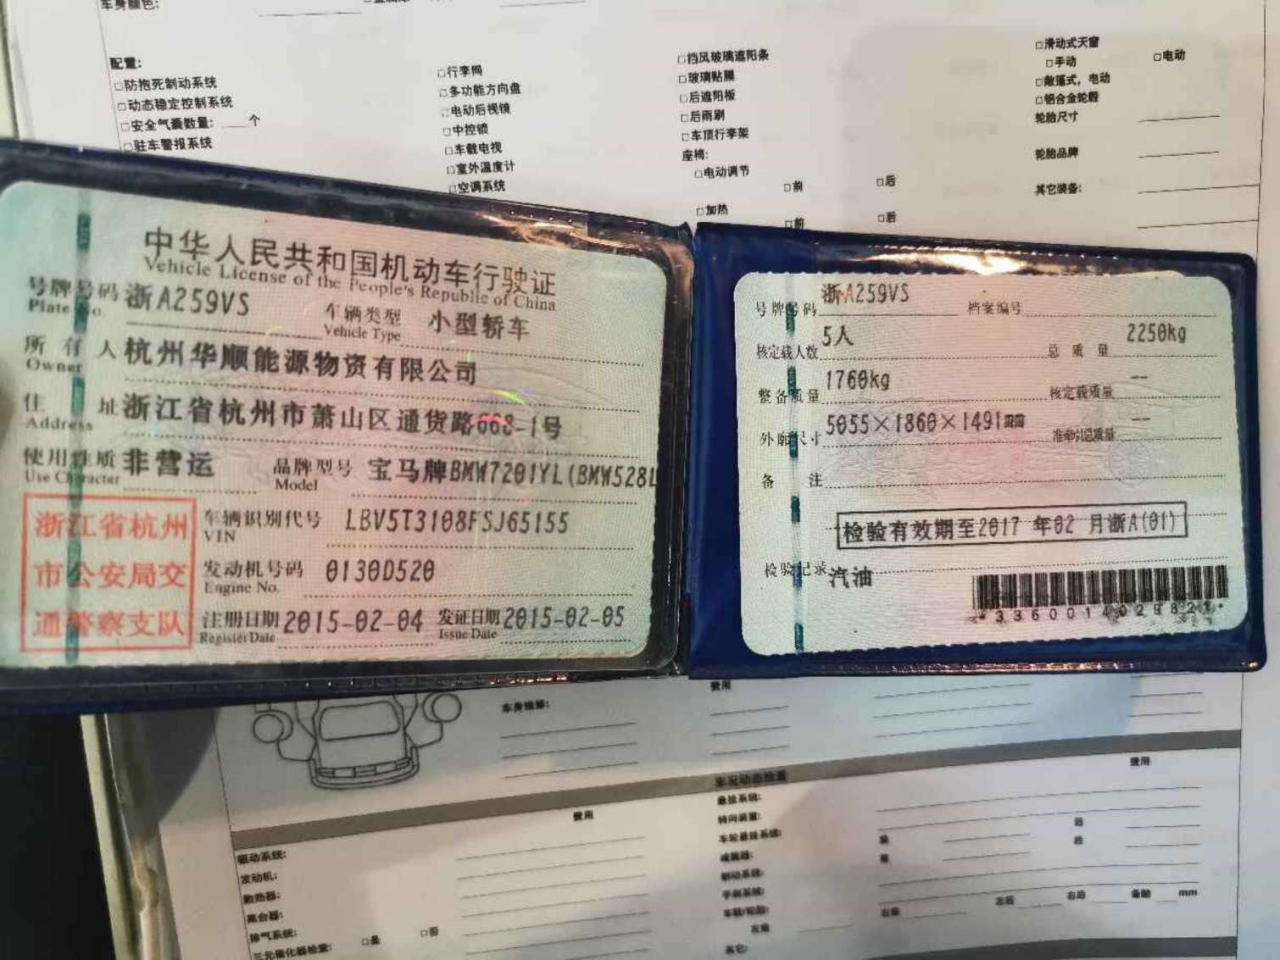 车身颜色:
配置:
□防抱死制动系统
□动态稳定控制系统
□安全气囊数量: 个
□驻车警报系统
□行李网
□多功能方向盘
□电动后视镜
□中控锁
□车载电视
□室外温度计
□空调系统
□挡风玻璃遮阳条
□玻璃贴膜
□后遮阳板
□后雨刷
□车顶行李架
座椅:
□电动调节
□前 □后
□加热
□前 □后
□滑动式天窗
□手动 □电动
□敞篷式，电动
□铝合金轮毂
轮胎尺寸
轮胎品牌
其它装备:
中华人民共和国机动车行驶证
Vehicle License of the People's Republic of China
号牌号码 浙A259VS 车辆类型 小型轿车
Plate No. Vehicle Type
所有人 杭州华顺能源物资有限公司
Owner
住址 浙江省杭州市萧山区通货路668-1号
Address
使用性质 非营运 品牌型号 宝马牌BMW7201YL(BMW528L
Use Character Model
浙江省杭州
市公安局交
通警察支队
车辆识别代号 LBV5T3108FSJ65155
VIN
发动机号码 0130D520
Engine No.
注册日期 2015-02-04 发证日期 2015-02-05
Register Date Issue Date
号牌号码 浙A259VS 档案编号
核定载人数 5人 总质量 2250kg
整备质量 1760kg 核定载质量 --
外廓尺寸 5055×1860×1491mm 准牵引总质量 --
备注
检验有效期至2017 年02 月浙A(01)
检验记录 汽油
*3360014029821*
车身维修:
费用
车况动态检查
费用
费用
驱动系统:
发动机:
散热器:
离合器:
排气系统:
三元催化器检查: □是 □否
悬挂系统:
转向装置:
车轮悬挂系统: 前 后
减震器: 前 后
制动系统:
手刹系统:
车轮/轮胎: 右前 左后 右后 备胎 mm
左前
其它: